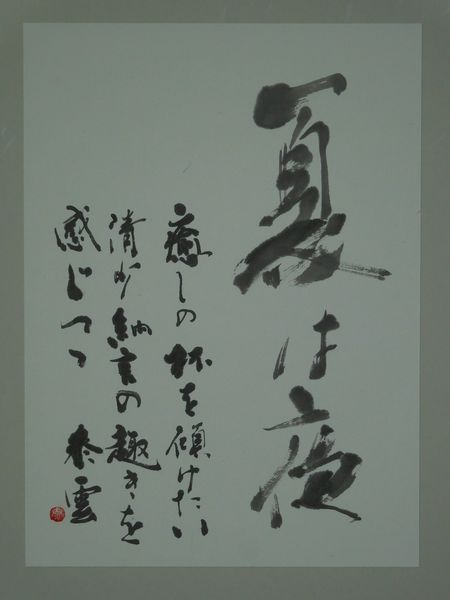 夏は夜
癒しの杯を傾けたい
清少納言の趣きを
感じつつ 泰雲